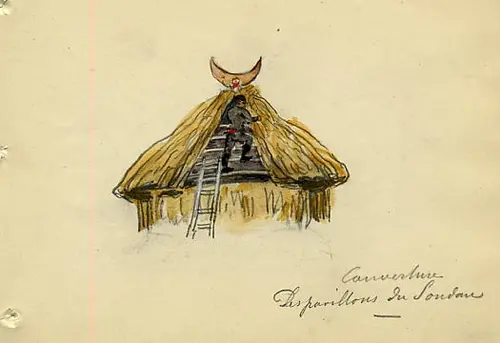 Couverture
Des pavillons du Soudan